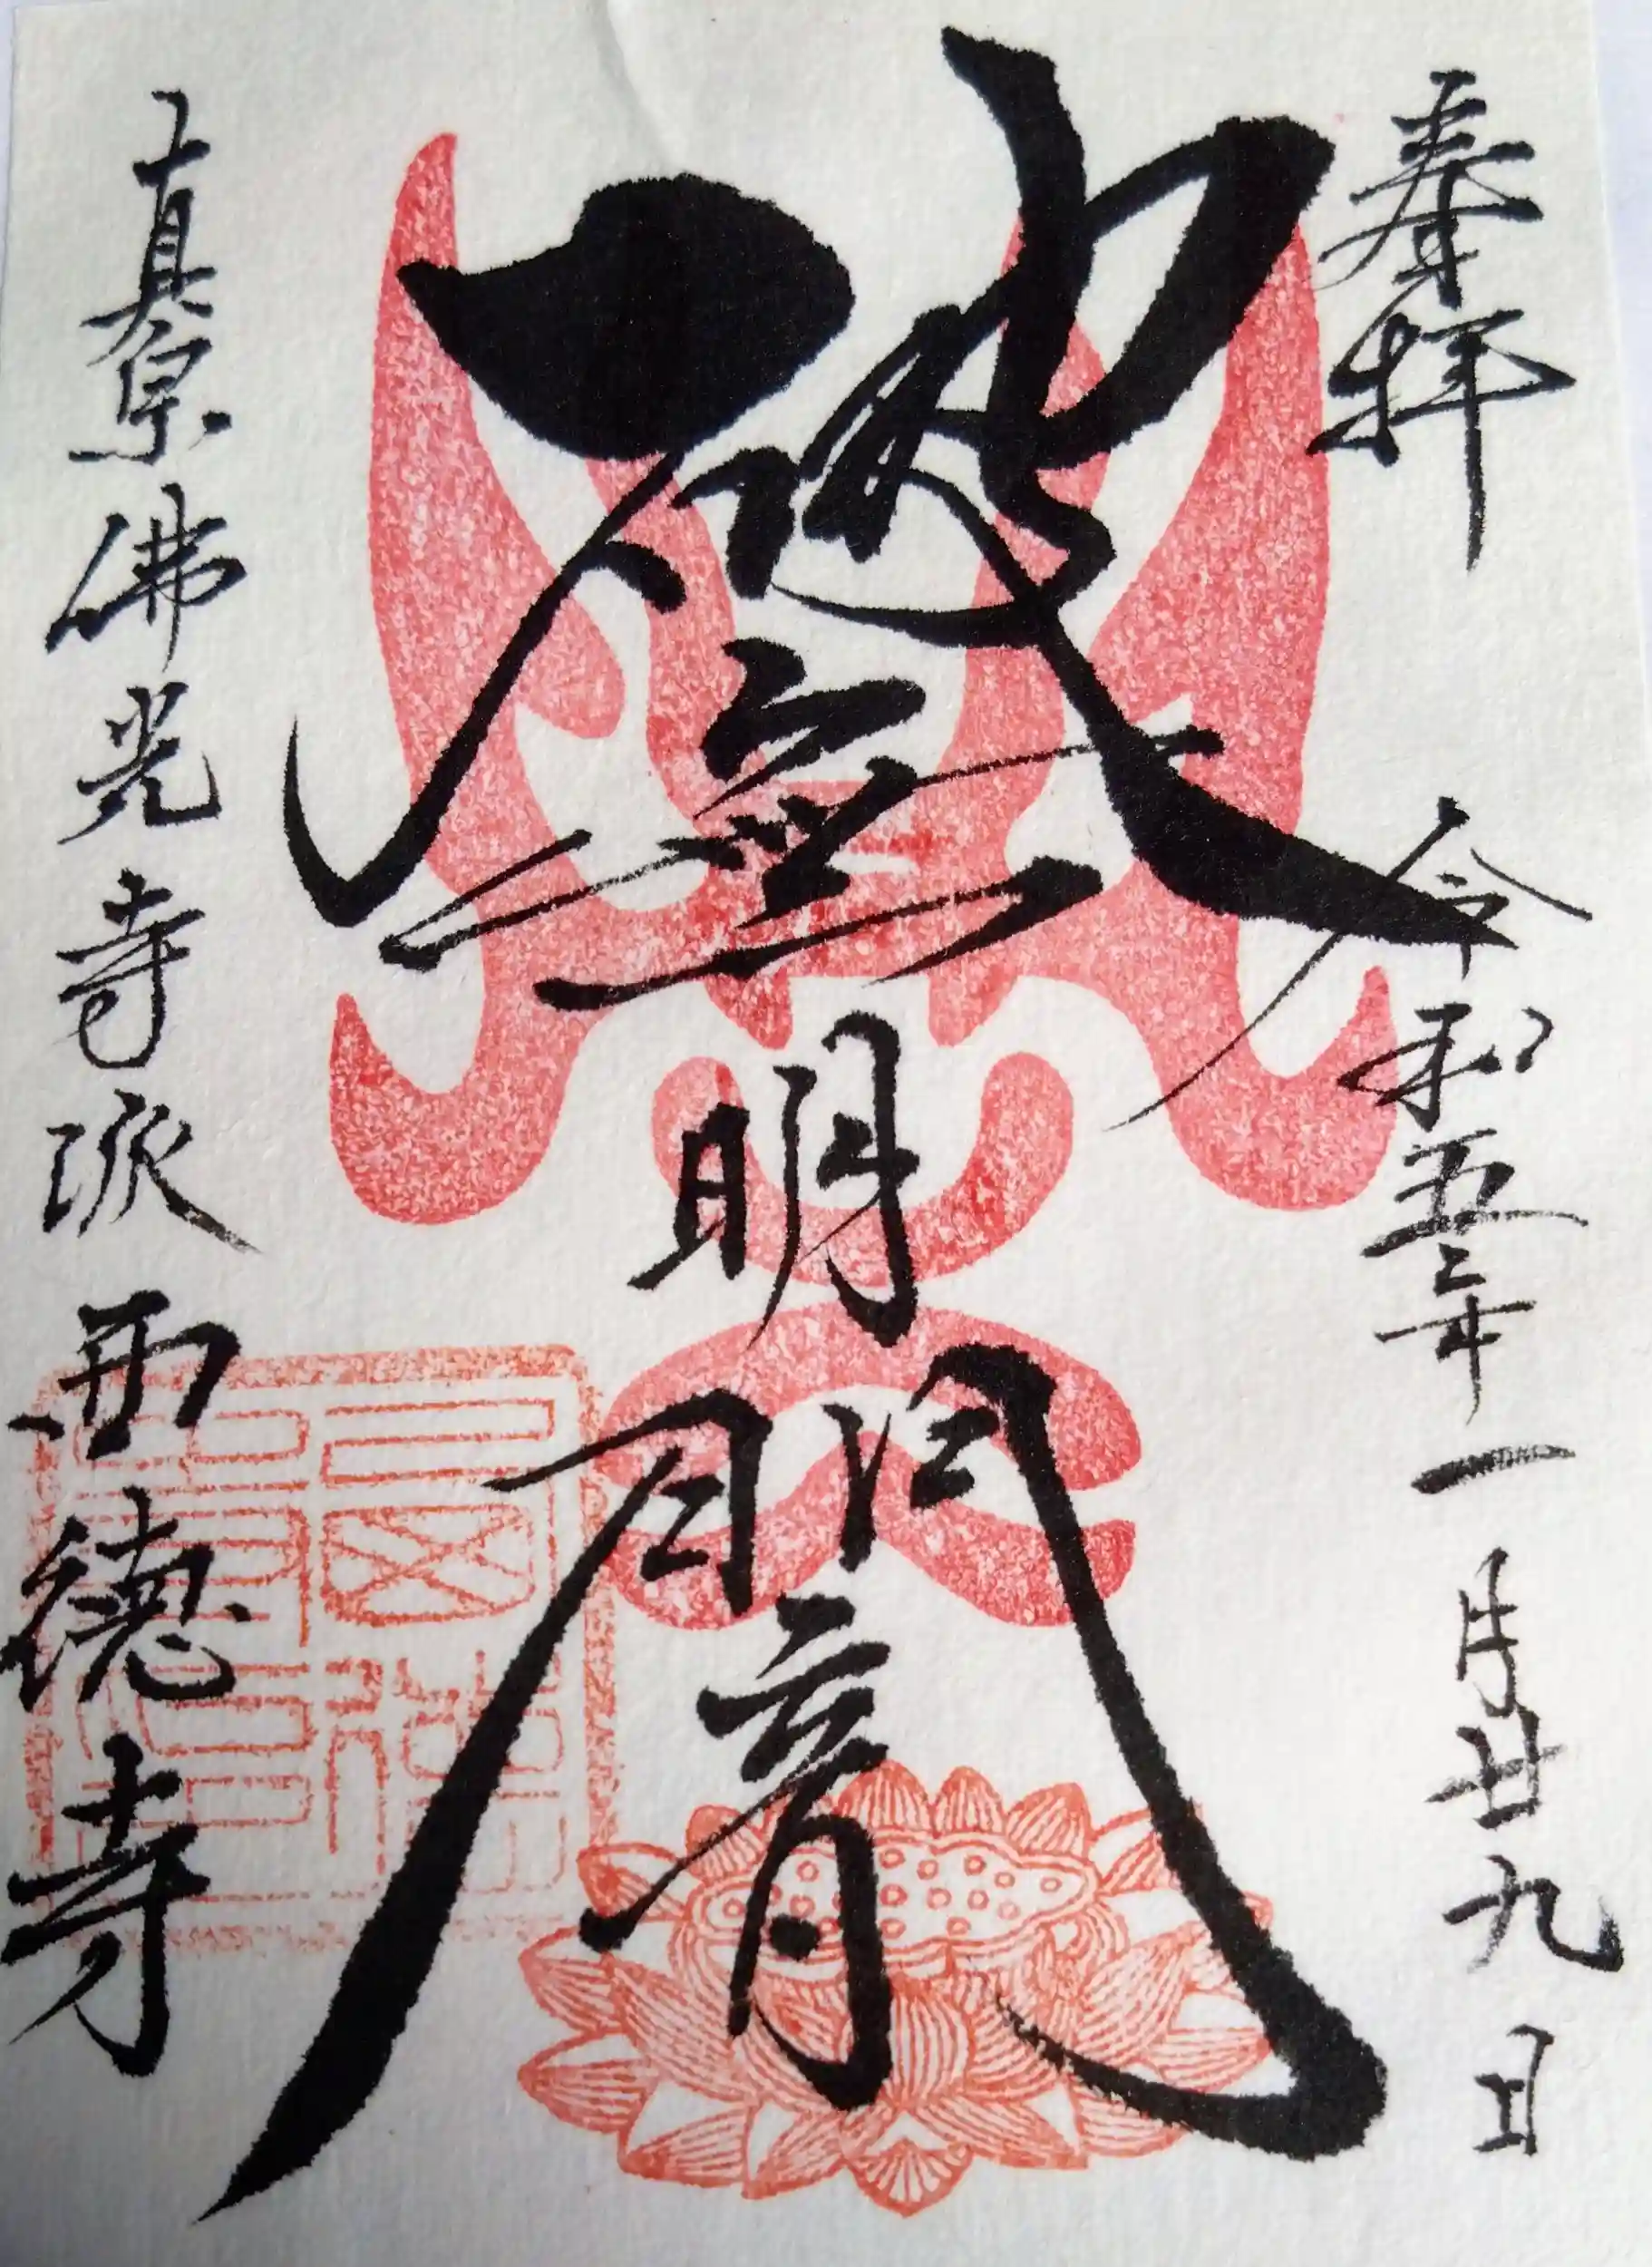 奉拝
令和五年一月廿九日
破無明闇
真宗佛光寺派 西德寺